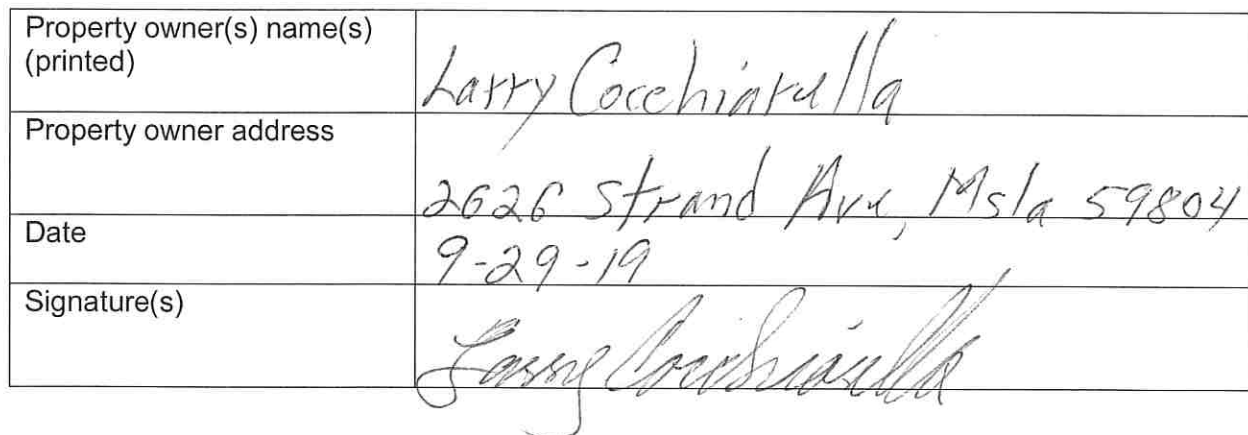 Property owner(s) name(s)
(printed)
Larry Cocchiarella
Property owner address
2626 Strand Ave, Msla 59804
Date
9-29-19
Signature(s)
Larry Cocchiarella